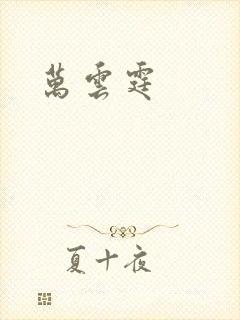 萬雲霆
夏十夜